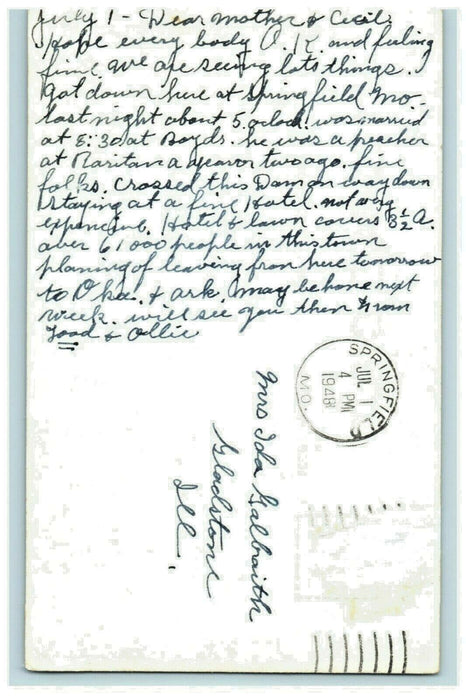 July 1 - Dear Mother & Cecil.
Hope every body O.K. and feeling
fine we are seeing lots things.
Got down here at Springfield Mo.
last night about 5 oclock. was married
at 8:30 at Boyds. he was a preacher
at Raritan a year or two ago. fine
folks. Crossed this Dam on way down
staying at a fine Hotel. not very
expensive. Hotel & lawn covers 3 1/2 A.
over 61000 people in this town
planing of leaving from here tomorrow
to Oka. & ark. may be home next
week. will see you then From
& Ollie
SPRINGFIELD
JUL 1
4 PM
1948
MO.
Mrs Ida Galbraith
Gladstone
Ill.